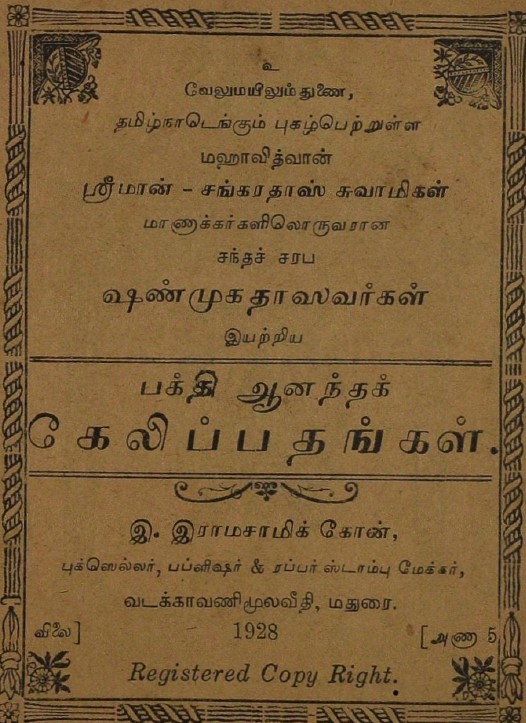 உ
வேலுமயிலும் துணை,
தமிழ்நாடெங்கும் புகழ்பெற்றுள்ள
மஹாவித்வான்
ஸ்ரீமான் - சங்கரதாஸ் சுவாமிகள்
மாணாக்கர்களிலொருவரான
சந்தச் சரப
ஷண்முகதாஸவர்கள்
இயற்றிய
பக்தி ஆனந்தக்
கேலிப்பதங்கள்.
இ. இராமசாமிக் கோன்,
புக்ஸெல்லர், பப்ளிஷர் & ரப்பர் ஸ்டாம்பு மேக்கர்,
வடக்காவணிமூலவீதி, மதுரை.
விலை] 1928 [அணா 5
Registered Copy Right.